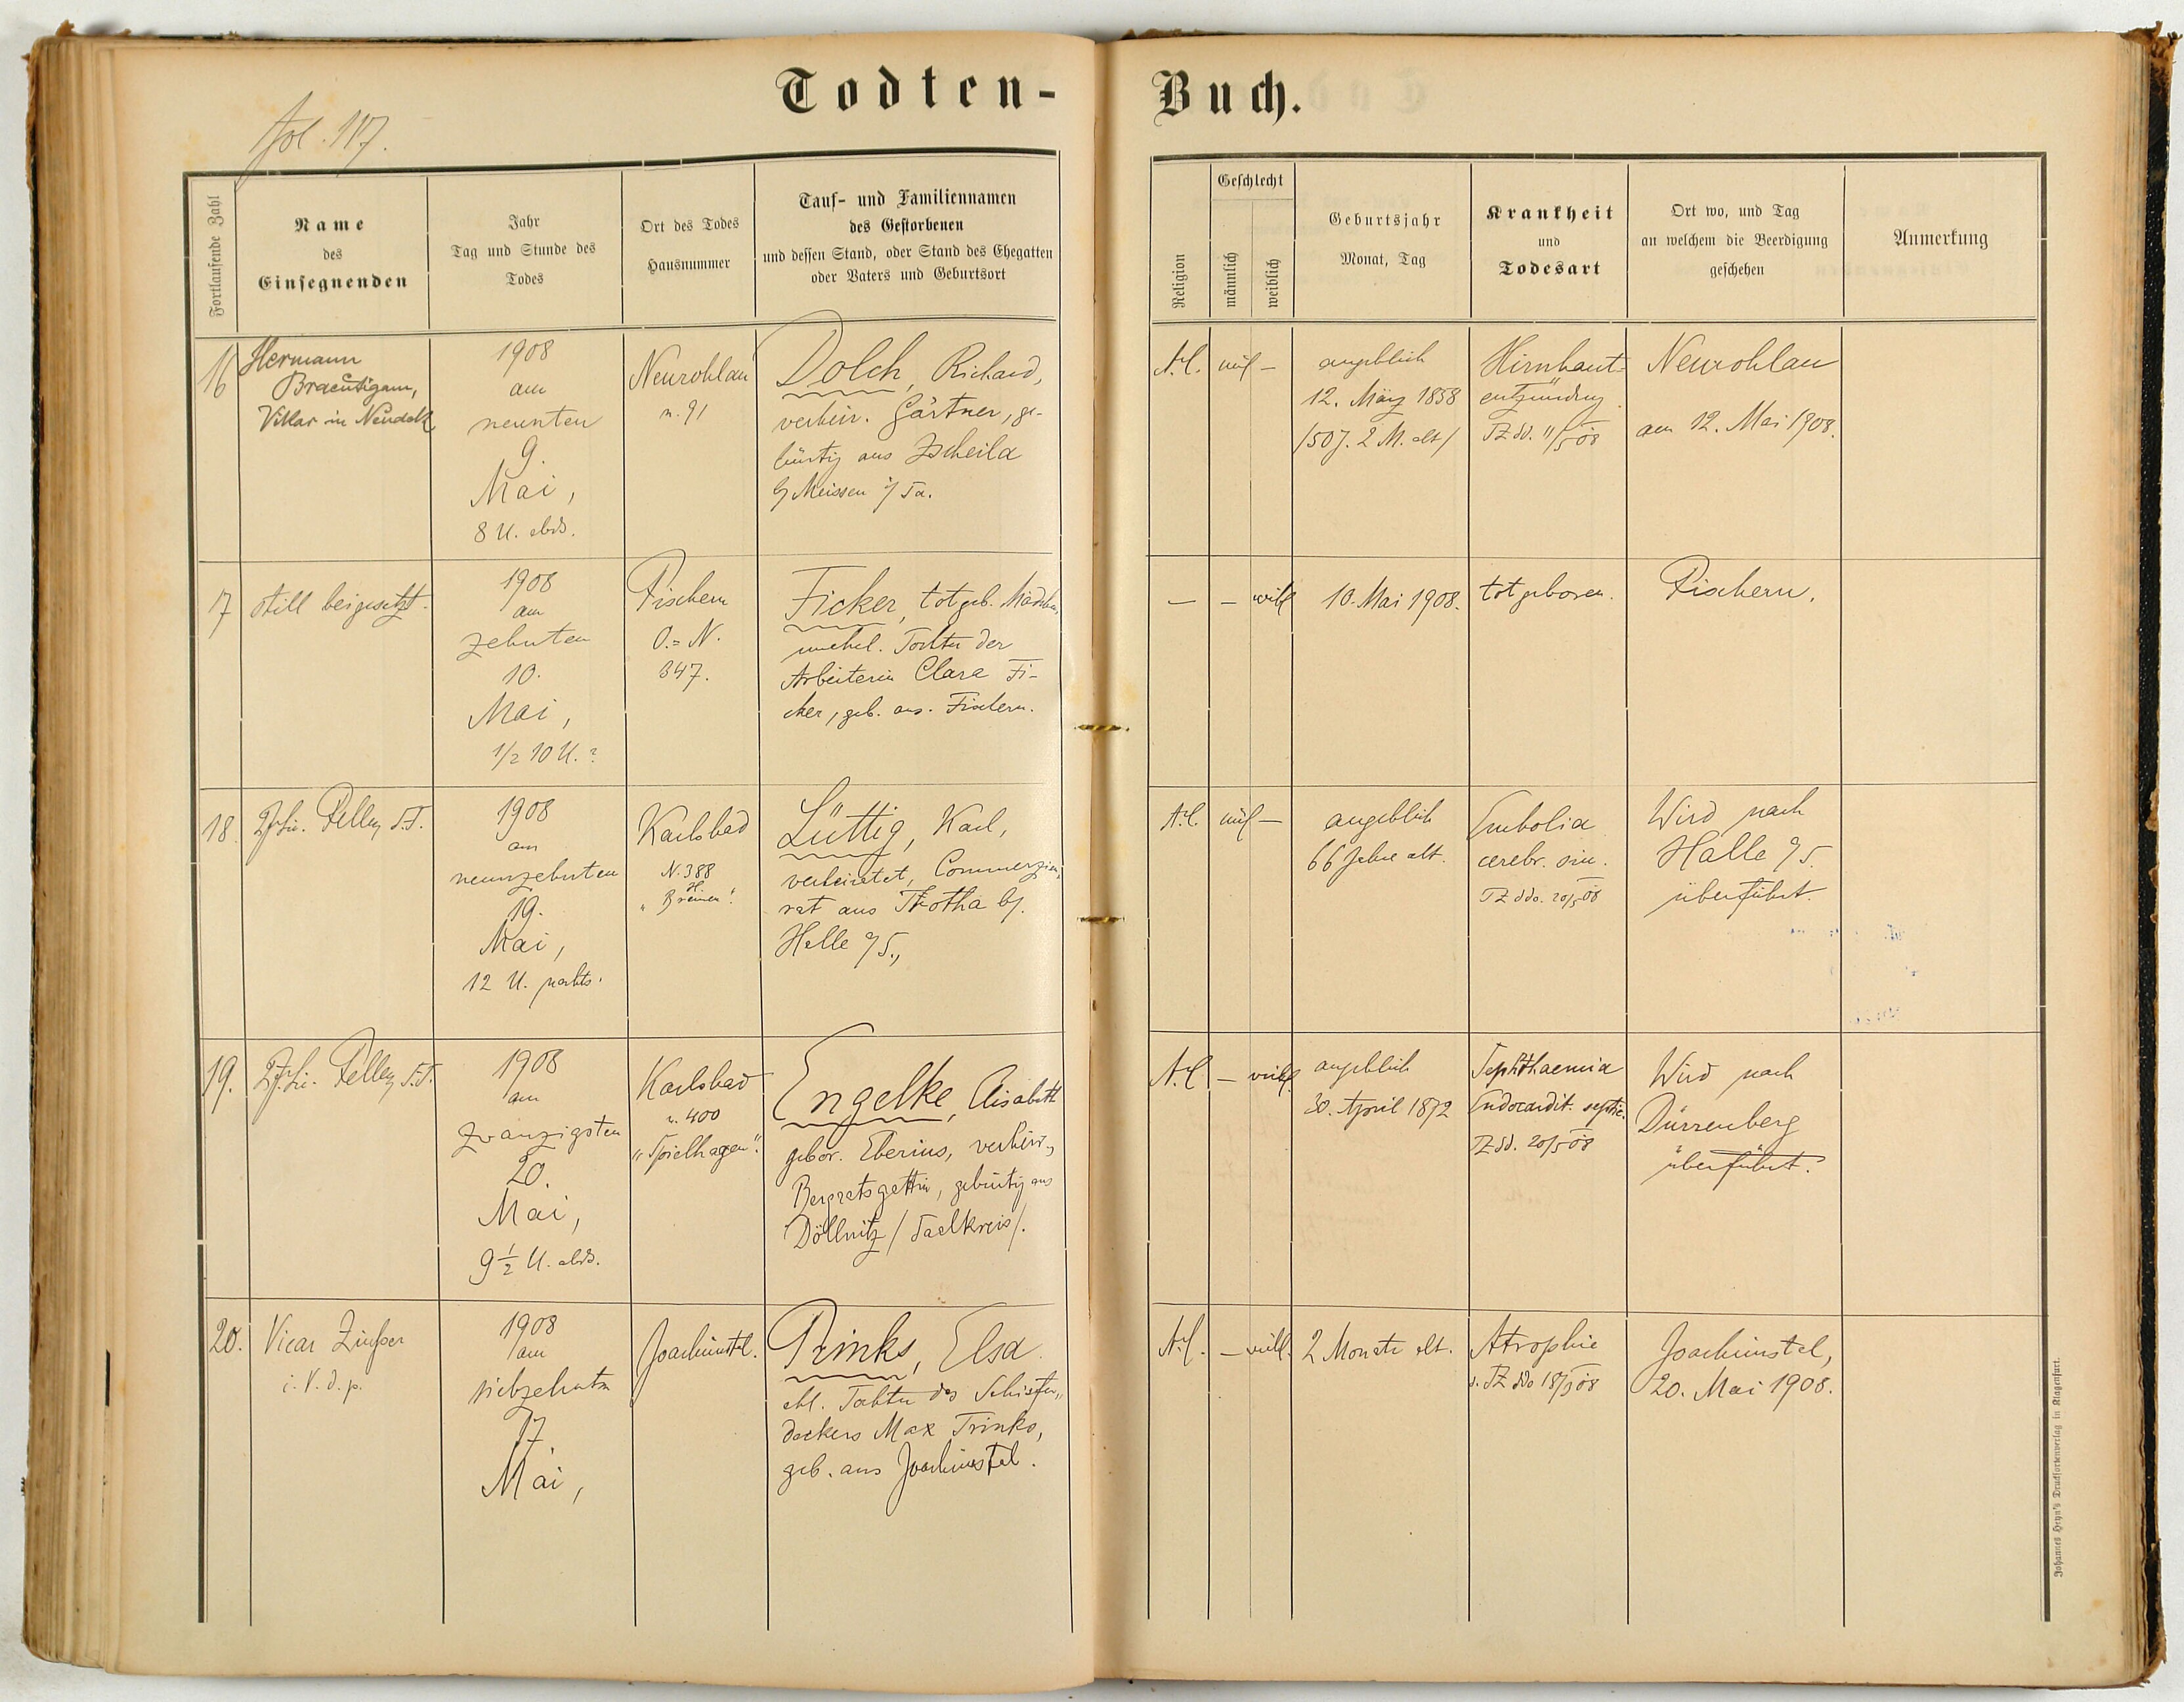 Todten-
Buch.
fol. 117.
Fortlaufende Zahl
Name
des
Einsegnenden
Jahr
Tag und Stunde des
Todes
Ort des Todes
Hausnummer
Tauf- und Familiennamen
des Gestorbenen
und dessen Stand, oder Stand des Ehegatten
oder Vaters und Geburtsort
Religion
Geschlecht
männlich
weiblich
Geburtsjahr
Monat, Tag
Krankheit
und
Todesart
Ort wo, und Tag
an welchem die Beerdigung
geschehen
Anmerkung
16
Hermann
Braeutigam,
Vikar in Neudek
1908
am
neunten
9.
Mai,
8 U. abds.
Neurohlau
n. 91
Dolch, Richard,
verheir. Gärtner, ge-
bürtig aus Zscheila
b/ Meissen i/ Sa.
A.C.
ml
–
angeblich
12. März 1858
/50 J. 2 M. alt/
Hirnhaut-
entzündung
TZ dd. 11/5 08
Neurohlau
am 12. Mai 1908.
17
still beigesetzt.
1908
am
zehnten
10.
Mai,
1/2 10 U.?
Fischern
O.=N.
347.
Ficker, totgeb. Mädchen,
unehel. Tochter der
Arbeiterin Clara Fi-
cker, geb. aus Fischern.
–
–
weibl
10. Mai 1908.
totgeboren.
Fischern.
18
Felley S.J.
1908
am
neunzehnten
19.
Mai,
12 U. nachts.
Karlsbad
N. 388
H.
"Bremen"
Lüttig, Karl,
verheiratet, Commerzien-
rat aus Trotha b/.
Halle a/S.,
A.C.
ml
–
angeblich
66 Jahre alt.
Embolia
cerebr. sin.
TZ ddo. 20/5 08
Wird nach
Halle a/S.
überführt.
19.
Felley S.J.
1908
am
zwanzigsten
20.
Mai,
9 1/2 U. abds.
Karlsbad
n. 400
"Spielhagen".
Engelke, Elisabeth
gebor. Eberius, verheir.,
Bergratsgattin, gebürtig aus
Döllnitz /Saalkreis/.
A.C.
–
weibl.
angeblich
30. April 1872
Sephthaemia
Endocardit. septic.
TZ dd. 20/5 08
Wird nach
Dürrenberg
überführt.
20.
Vicar
i. V. d. p.
1908
am
siebzehnten
17.
Mai,
Joachimstal.
Trinks, Elsa
ehl. Tochter des Schiefer-
deckers Max Trinks,
geb. aus Joachimstal.
A.C.
–
weibl.
2 Monate alt.
Atrophie
s. TZ ddo 18/5 08
Joachimstal,
20. Mai 1908.
Johannes Heyn's Drucksortenverlag in Klagenfurt.